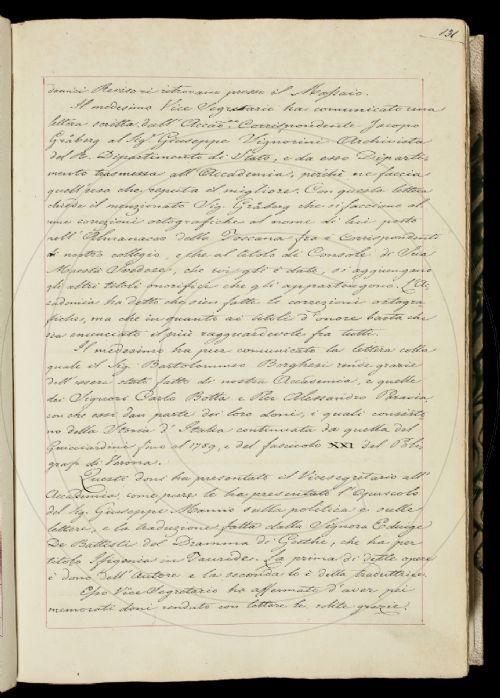 131
demici Revisori ritrovare presso il Massaio.
Il medesimo Vice Segretario ha comunicato una
lettera scritta dall'Accad.co Corrispondente Jacopo
Gråberg al Sig. Giuseppe Vignorini Archivista
del R. Dipartimento di Stato, e da esso Diparti-
mento trasmessa all'Accademia, perchè ne faccia
quell'uso che reputa il migliore. Con questa lettera
chiede il menzionato Sig. Gråberg che si facciano al-
cune correzioni ortografiche al nome di lui posto
nell'Almanacco della Toscana fra i Corrispondenti
di nostro collegio, e che al titolo di Console di Sua
Maestà Svedese, che ivi gli è dato, si aggiungano
gli altri titoli onorifici che gli appartengono. L'Ac-
cademia ha detto che sien fatte le correzioni ortogra-
fiche, ma che in quanto ai titoli d'onore basta che
sia enunciato il più ragguardevole fra tutti.
Il medesimo ha pur comunicato la lettera colla
quale il Sig. Bartolommeo Borghesi rende grazie
dell'essere stato fatto di nostra Accademia, e quelle
dei Signori Carlo Botta e Pier Alessandro Paravia,
con che essi dan parte dei loro doni, i quali consisto-
no della Storia d'Italia continuata da quella del
Guicciardini fino al 1789, e del fascicolo XXI del Poli-
grafo di Verona.
Questi doni ha presentato il Vicesegretario all'
Accademia, come pure le ha presentato l'Opuscolo
del Sig. Giuseppe Manno sulla politica e sulle
lettere, e la traduzione fatta dalla Signora Edvige
De Battisti del Dramma di Goethe, che ha per
titolo Ifigenia in Tauride. La prima di dette opere
è dono dell'Autore e la seconda lo è della traduttrice.
Esso Vice Segretario ha affermato d'aver pei
memorati doni rendute con lettere le solite grazie.